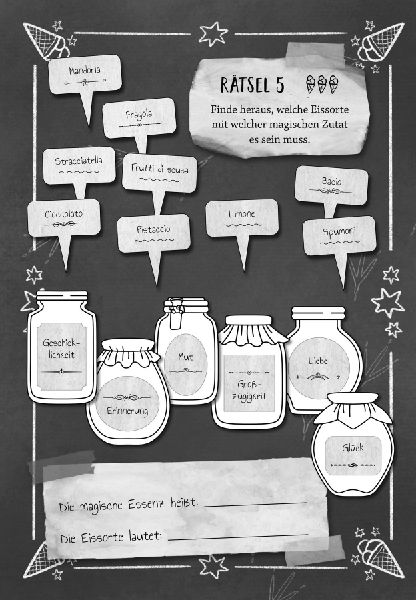 RÄTSEL 5
Finde heraus, welche Eissorte
mit welcher magischen Zutat
es sein muss.
Mandorla
Fragola
Stracciatella
Frutti di
Bacio
Cioccolato
Pistaccio
Limone
Spumon
Geschick-
lichkeit
Erinnerung
Mut
Groß-
zügigkeit
Liebe
Glück
Die magische Essenz heißt:
Die Eissorte lautet: